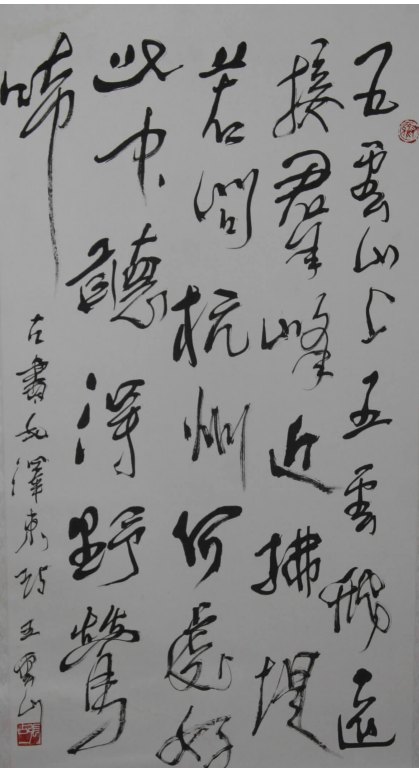 五雲山上五雲飛遠
接羣峰近拂堤
若問杭州何處好
此中聽得野鶯
啼
古書毛澤東詩五雲山